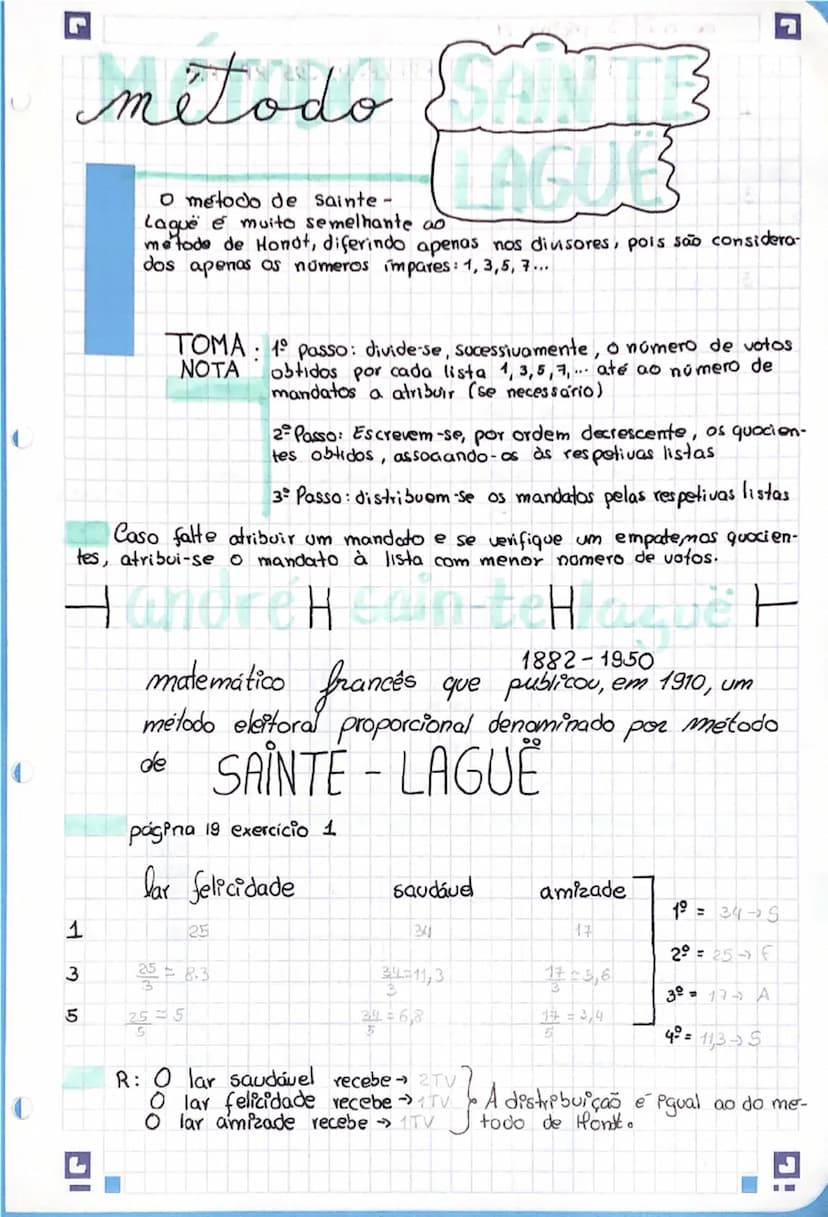 método SAINTE
LAGUË
O método de Sainte-
Laguë é muito semelhante ao
método de Hondt, diferindo apenas nos divisores, pois são considera-
dos apenas os números ímpares: 1, 3, 5, 7...
TOMA NOTA : 1º passo: divide-se, sucessivamente, o número de votos
obtidos por cada lista 1, 3, 5, 7, ... até ao número de
mandatos a atribuir (se necessário)
2º Passo: Escrevem-se, por ordem decrescente, os quocien-
tes obtidos, associando-os às respetivas listas
3º Passo: distribuem-se os mandatos pelas respetivas listas
Caso falte atribuir um mandato e se verifique um empate nos quocien-
tes, atribui-se o mandato à lista com menor número de votos.
andré H sainte H laguë
1882-1950
matemático francês que publicou, em 1910, um
método eleitoral proporcional denominado por método
de SAINTE-LAGUË
página 19 exercício 1
lar felicidade saudável amizade
1 25 34 17
3 25/3 = 8.3 34/3 = 11,3 17/3 = 5,6
5 25/5 = 5 34/5 = 6,8 17/5 = 3,4
1º = 34 → S
2º = 25 → F
3º = 17 → A
4º = 11,3 → S
R: O lar saudável recebe → 2TV
O lar felicidade recebe → 1TV
O lar amizade recebe → 1TV
A distribuição é igual ao do mé-
todo de Hondt.